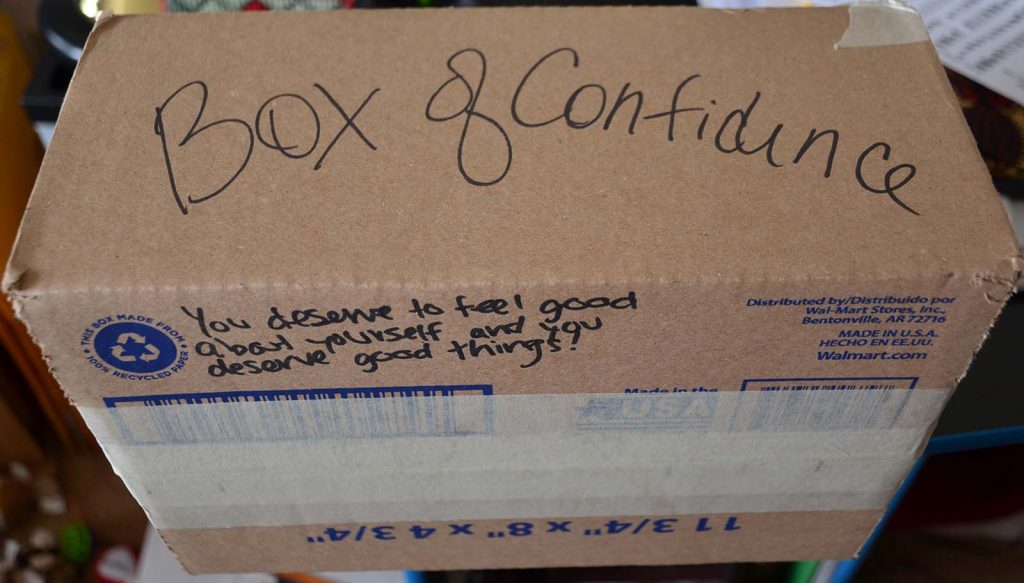 Box of Confidence
You deserve to feel good
about yourself and you
deserve good things!
THIS BOX MADE FROM
100% RECYCLED PAPER
Distributed by/Distribuido por
Wal-Mart Stores, Inc.,
Bentonville, AR 72716
MADE IN U.S.A.
HECHO EN EE.UU.
Walmart.com
Made in the
USA
11 3/4" x 8" x 4 3/4"